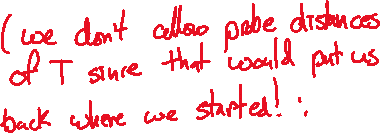 (we don't allow probe distances
of T since that would put us
back where we started! :